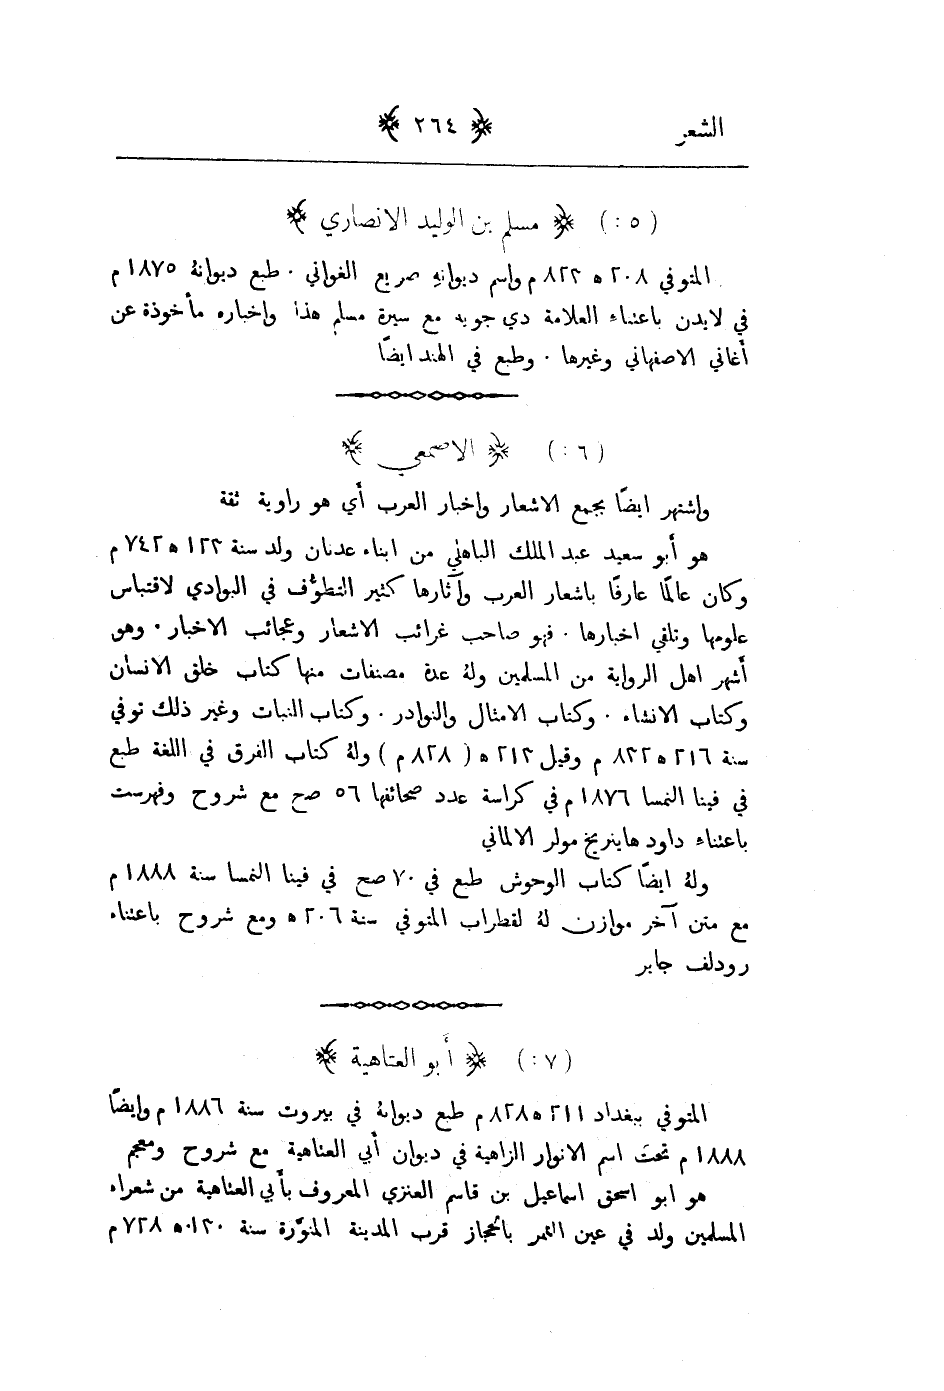 الشعر ﴿ ٢٦٤ ﴾
(٥:) ﴿ مسلم بن الوليد الانصاري ﴾
المتوفي ٢٠٨ ه ٨٢٣ م واسم ديوانهِ صريع الغواني . طبع ديوانهُ ١٨٧٥ م
في لايدن باعتناء العلامة دي جويه مع سيرة مسلم هذا واخباره مأخوذة عن
أغاني الاصفهاني وغيرها . وطبع في الهند ايضًا
(٦:) ﴿ الاصمعي ﴾
واشتهر ايضًا بجمع الاشعار واخبار العرب أي هو راوية ثقة
هو أبو سعيد عبد الملك الباهلي من ابناء عدنان ولد سنة ١٢٣ ه ٧٤٢ م
وكان عالمًا عارفًا باشعار العرب وآثارها كثير التطوُّف في البوادي لاقتباس
علومها وتلقي اخبارها . فهو صاحب غرائب الاشعار وعجائب الاخبار . وهو
أشهر اهل الرواية من المسلمين ولهُ عدة مصنفات منها كتاب خلق الانسان
وكتاب الانشاء . وكتاب الامثال والنوادر . وكتاب النبات وغير ذلك توفي
سنة ٢١٦ ه ٨٣٢ م وقيل ٢١٣ ه ( ٨٢٨ م ) ولهُ كتاب الفرق في اللغة طبع
في فينا النمسا ١٨٧٦ م في كراسة عدد صحائفها ٥٦ صح مع شروح وفهرست
باعتناء داود هاينريخ مولر الالماني
ولهُ ايضًا كتاب الوحوش طبع في ٧٠ صح في فينا النمسا سنة ١٨٨٨ م
مع متن آخر موازن لهُ لقطراب المتوفي سنة ٢٠٦ ه ومع شروح باعتناء
رودلف جاير
(٧:) ﴿ أبو العتاهية ﴾
المتوفي ببغداد ٢١١ ه ٨٢٨ م طبع ديوانهُ في بيروت سنة ١٨٨٦ م وايضًا
١٨٨٨ م تحت اسم الانوار الزاهية في ديوان أبي العتاهية مع شروح ومعجم
هو ابو اسحق اسماعيل بن قاسم العنزي المعروف بأبي العتاهية من شعراء
المسلمين ولد في عين التمر بالحجاز قرب المدينة المنوّرة سنة ١٣٠ ه ٧٢٨ م